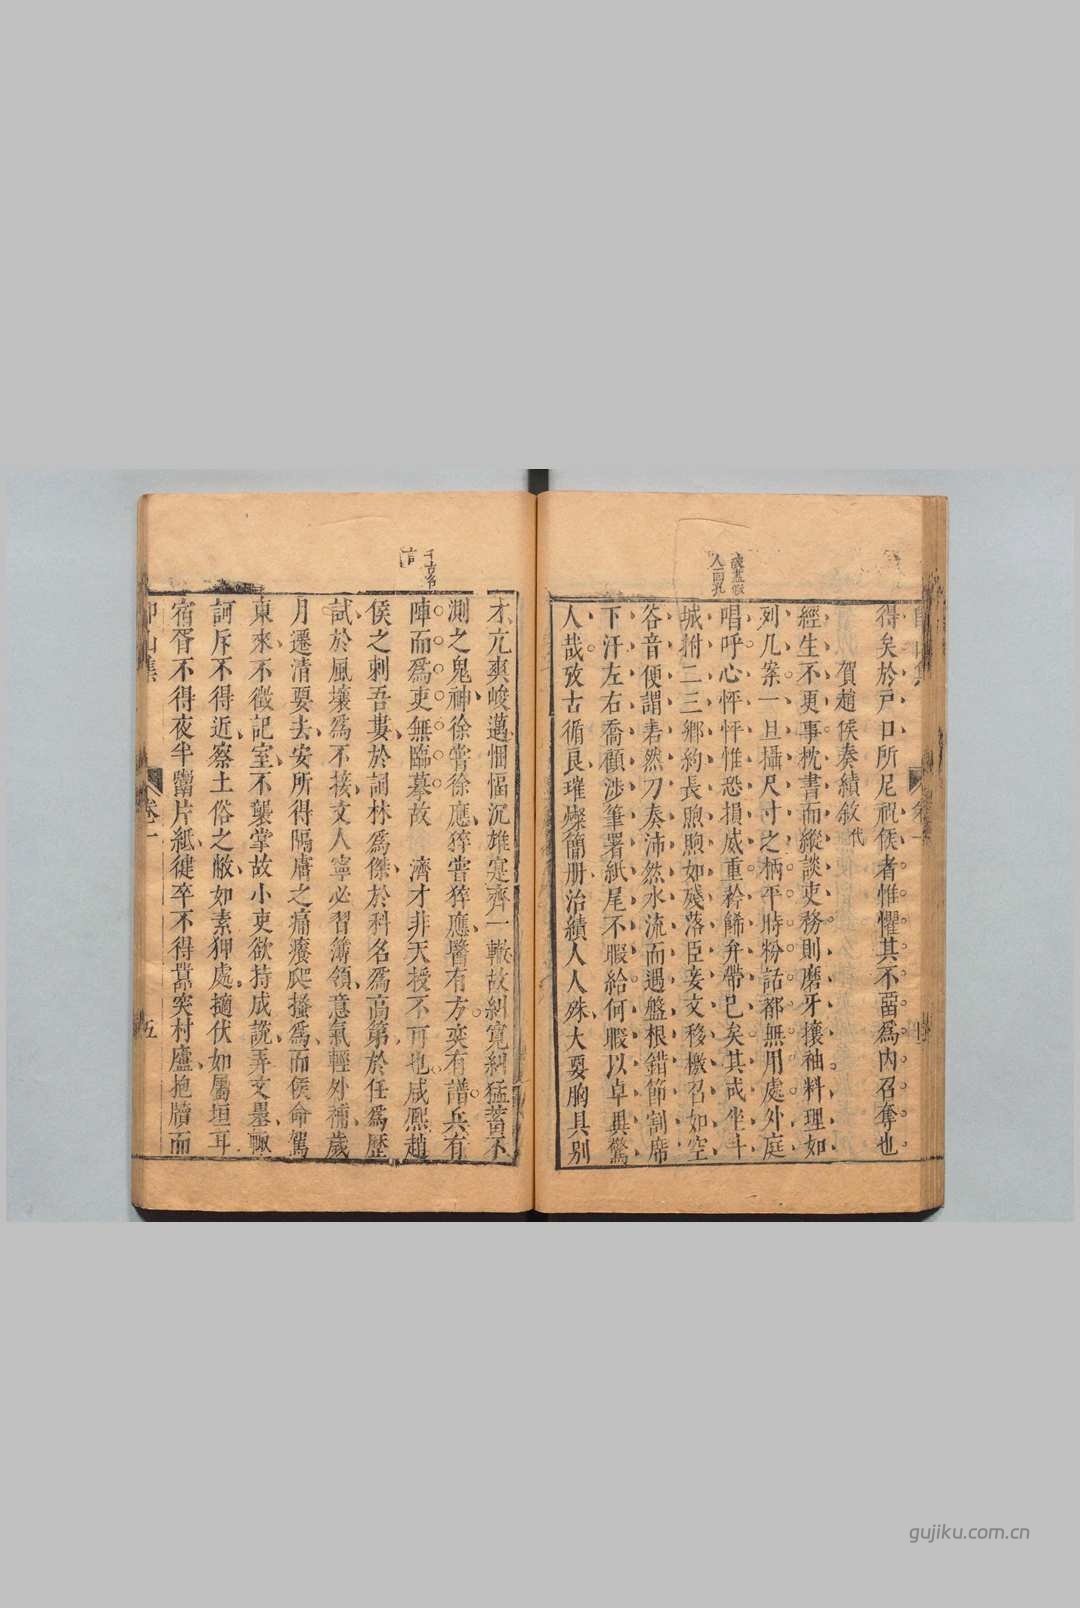 得矣於戸口所尼祝侯者惟懼其不畱爲內召奪也
賀趙侯奏績敘代
經生不更事枕書而縱談吏務則磨牙攘袖料理如
列几案一旦攝尺寸之柄平時粉話都無用處外庭
唱呼心怦怦惟恐損威重矜餙弁帶已矣其或坐斗
城拊二三鄉約長煦煦如殘落臣妾文移檄召如空
谷音便謂砉然刀奏沛然水流而遇盤根錯節割席
下汗左右喬顧涉筆署紙尾不暇給何暇以卓異驚
人哉攷古循良璀燦簡册治績人人殊大要胸具別
才亢爽峻邁悃愊沉雄寔齊一轍故糾寬糾猛蓄不
測之鬼神徐嘗徐應猝嘗猝應醫有方奕有譜兵有
陣而爲吏無臨摹故濟才非天授不可也咸熈趙
侯之刺吾婁於詞林爲傑於科名爲高第於任爲歷
試於風壤爲不接文人寧必習簿領意氣輕外補歲
月遷清要去安所得隔膚之痛癢爬搔爲而侯命駕
東來不徵記室不襲掌故小吏欲持成說弄文墨輒
訶斥不得近察土俗之敝如素狎處擿伏如屬垣耳
宿胥不得夜半鬻片紙徤卒不得嘂突村廬抱牘而
卷一
五
gujiku.com.cn